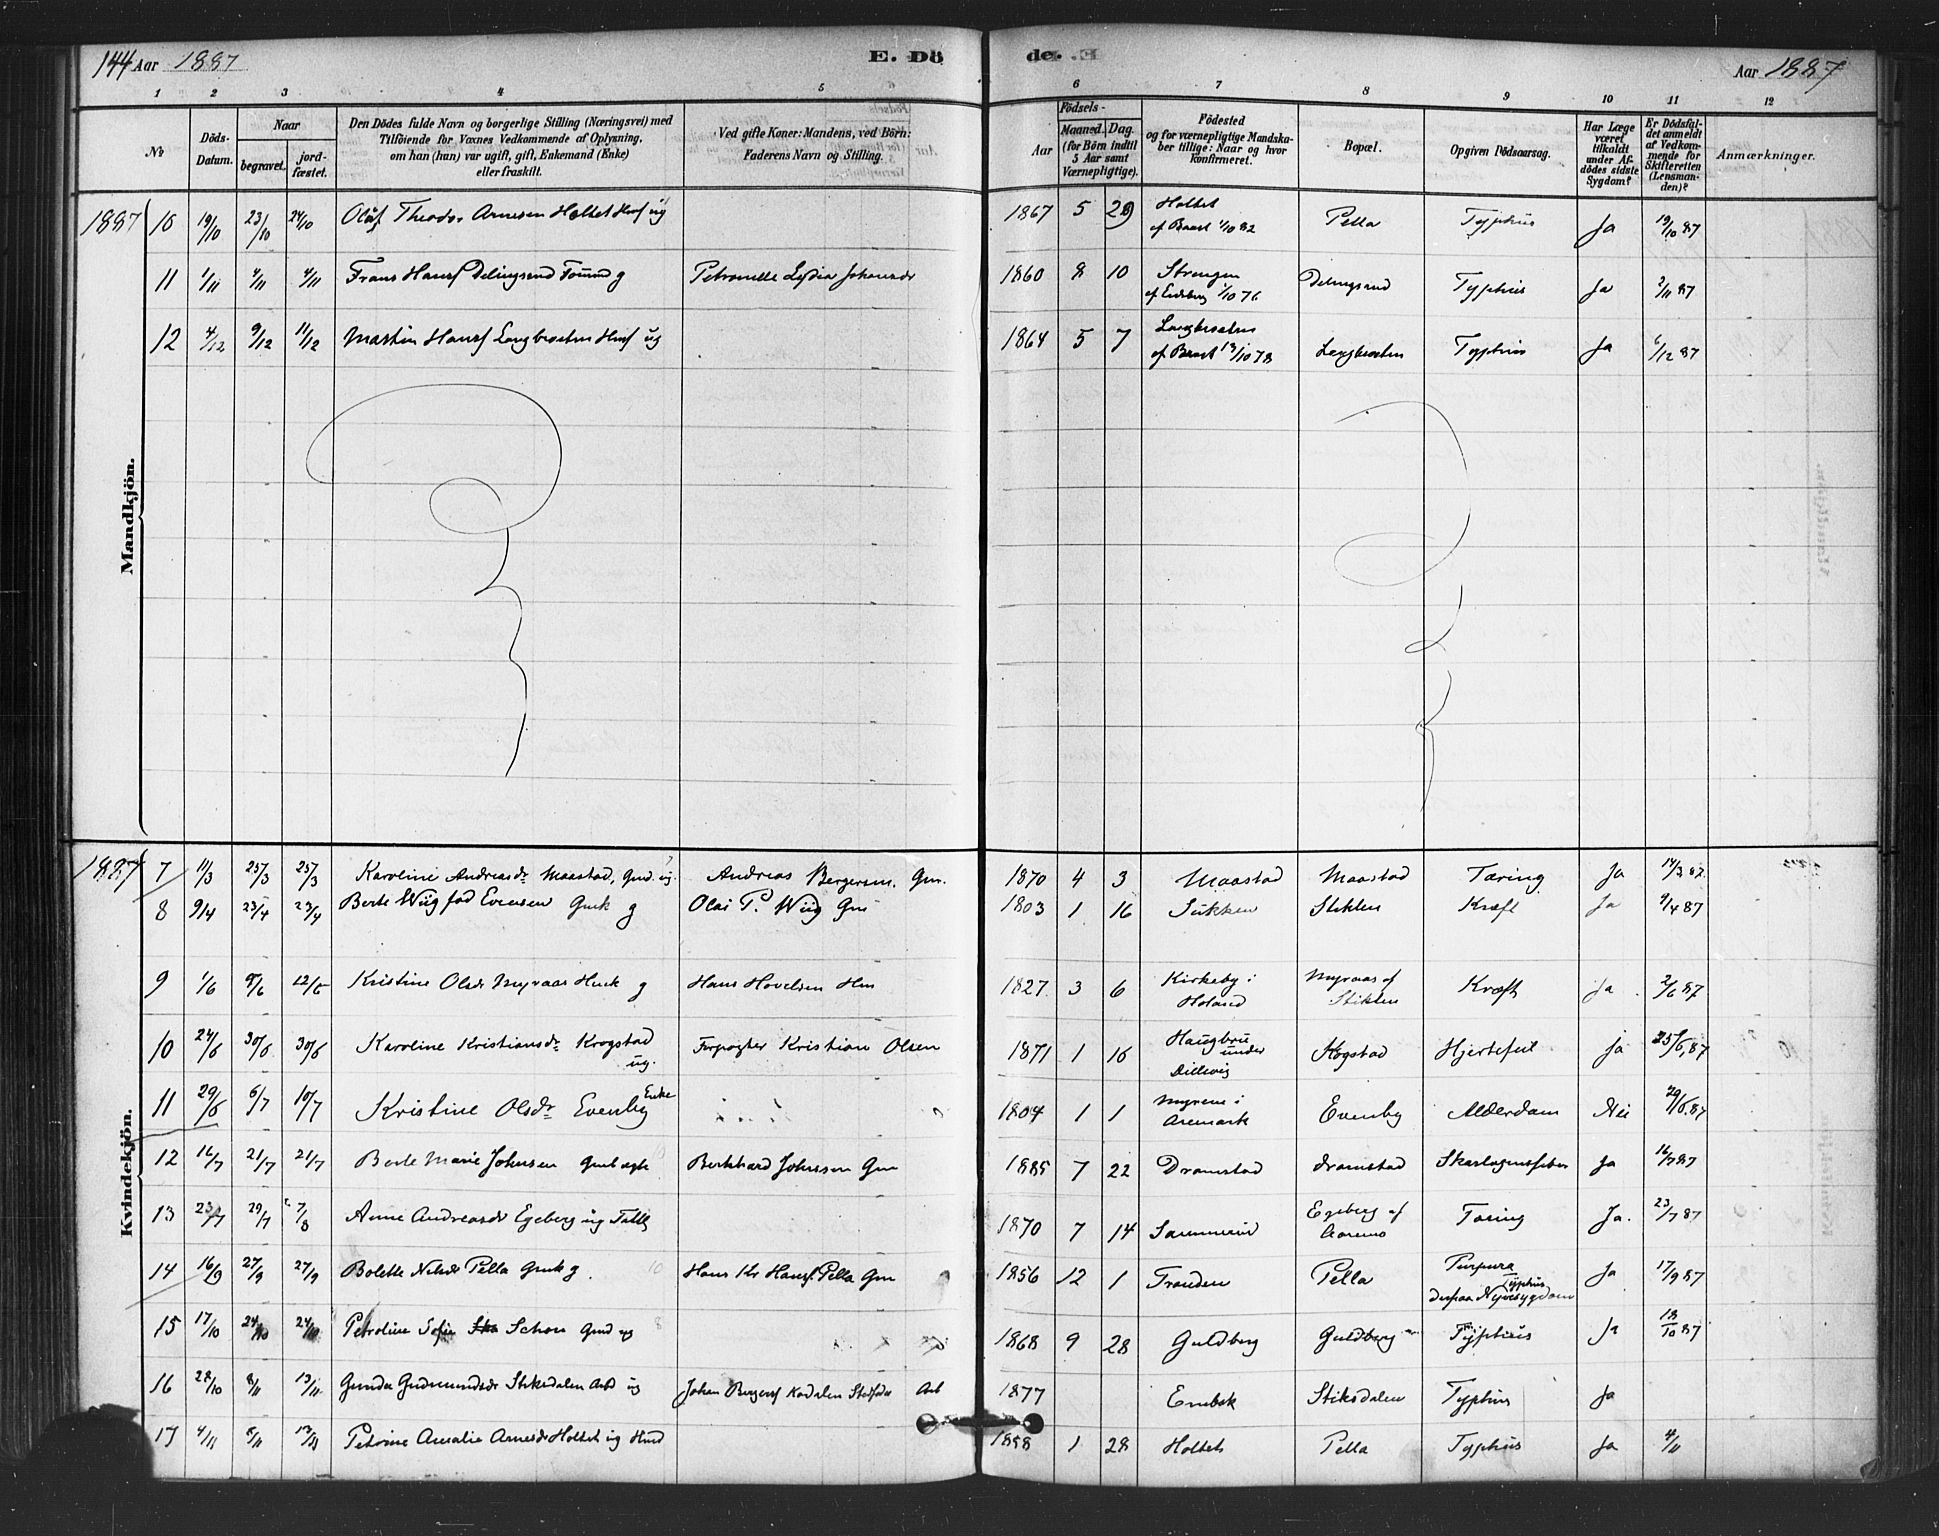 144 Aar 1887
E. Dö
de.
Aar 1887
1 2 3 4 5 6 7 8 9 10 11 12
No
Döds-Datum.
Naar
begravet.
jord-fæstet.
Den Dödes fulde Navn og borgerlige Stilling (Næringsvei) med
Tilföiende for Voxnes Vedkommende af Oplysning,
om han (hun) var ugift, gift, Enkemand (Enke)
eller fraskilt.
Ved gifte Koner: Mandens, ved Börn:
Faderens Navn og Stilling.
Födsels-
Aar
Maaned. Dag.
(for Börn indtil
5 Aar samt
Værnepligtige).
Födested
og for værnepligtige Mandska-
ber tillige: Naar og hvor
konfirmeret.
Bopæl.
Opgiven Dödsaarsag.
Har Læge
været
tilkaldt
under Af-
dödes sidste
Sygdom?
Er Dödsfal-
det anmeldt
af Vedkom-
mende for
Skifteretten
(Lensman-
den)?
Anmærkninger.
Mandkjön.
1887 10 19/10 23/10 24/10 Olaf Theodor Arnesen Holtet ug 1867 5 29 Holtet 1/10 82 Pella Typhus Ja 19/10 87
11 1/11 4/11 4/11 Frans Hansf Delingsrud g Petronelle Lydia 1860 8 10 Strengen 1/10 76 Delingsrud Typhus Ja 2/11 87
12 4/12 9/12 11/12 Martin Hansf Langbraaten ug 1864 5 7 Langbraaten 13/10 78 Langbraaten Typhus Ja 6/12 87
Kvindekjön.
1887 7 11/3 25/3 25/3 Karoline Andreasdr Maastad, Gmd. ug. Andreas Bergersen. Gm. 1870 4 3 Maastad Maastad Tæring Ja 14/3 87
8 9/4 23/4 23/4 Berte Wiig fød Evensen Gmk g Olai P. Wiig Gm 1803 1 16 Sukken Stiklen Kræft Ja 9/4 87
9 1/6 8/6 12/6 Kristine Olsdr Myraas Hmk g Hans Hovelsen Hm 1827 3 6 Kirkeby i Høland Myraas af Stiklen Kræft Ja 2/6 87
10 24/6 30/6 30/6 Karoline Kristiansdr Krogstad ug. Forpagter Kristian Olsen 1871 1 16 Haugbru under Dillevig Krogstad Hjertefeil Ja 25/6 87
11 29/6 6/7 10/7 Kristine Olsdr Evenby Enke 1804 1 1 Myrene i Aremark Evenby Alderdom Nei 29/6 87
12 16/7 21/7 21/7 Berte Marie Johnsen Gmb ægte Bernhard Johnsen Gm 1885 7 22 Dramstad Dramstad Skarlagensfeber Ja 16/7 87
13 23/7 29/7 7/8 Anne Andreasdr Egeberg ug 1870 7 14 Egeberg af Tæring Ja. 23/7 87
14 16/9 27/9 27/9 Bolette Nilsdr Pella Gmk g. Hans Kr Hansf. Pella Gm 1856 12 1 Tranden Pella Purpura Typhus derpaa Nyresygdom Ja 17/9 87
15 17/10 24/10 24/10 Petroline Sofie Schou Gmd ug 1868 9 28 Guldberg Guldberg Typhus Ja 18/10 87
16 28/10 8/11 13/11 Gunda Gudmundsdr Stiksdalen Arbd ug Johan Bergersf Kordalen Stedfader Arb 1877 Enebak Stiksdalen Typhus Ja
17 4/11 8/11 13/11 Petrine Amalie Arnesdr Holtet ug Hmd 1858 1 28 Holtet Pella Typhus Ja 4/11